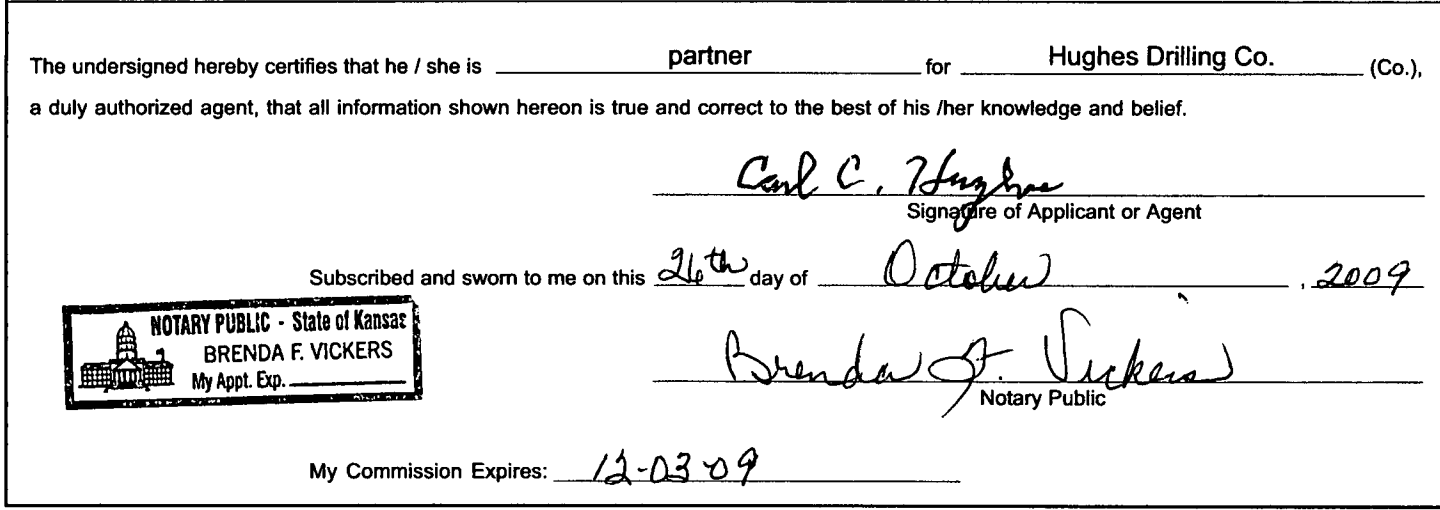 The undersigned hereby certifies that he / she is partner for Hughes Drilling Co. (Co.),
a duly authorized agent, that all information shown hereon is true and correct to the best of his /her knowledge and belief.
Carl C. Hughes
Signature of Applicant or Agent
Subscribed and sworn to me on this 26th day of October , 2009
NOTARY PUBLIC - State of Kansas
BRENDA F. VICKERS
My Appt. Exp.
Brenda F. Vickers
Notary Public
My Commission Expires: 12-03-09